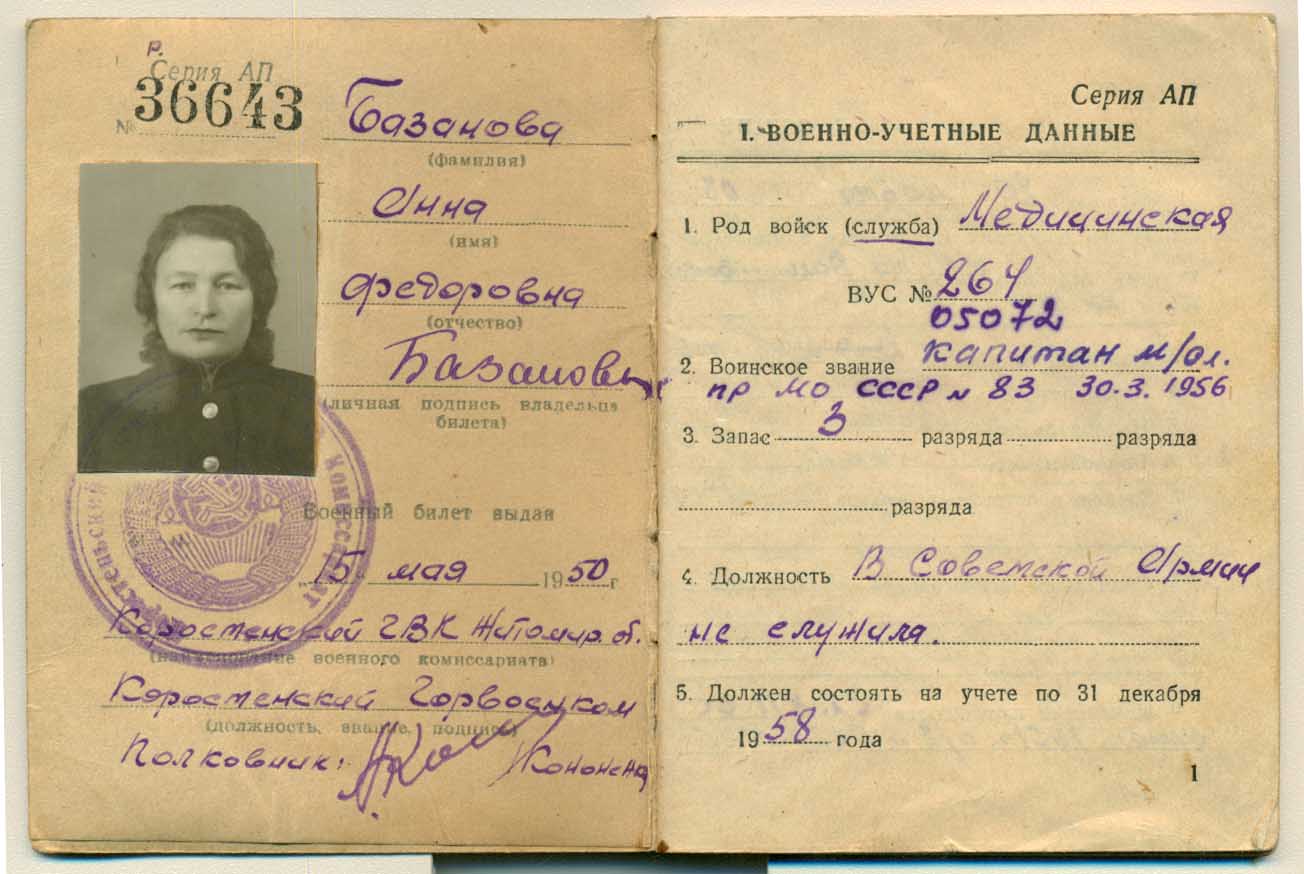 Р.
Серия АП
№ 36643
Базанова
(фамилия)
Анна
(имя)
Федоровна
(отчество)
Базанова
(личная подпись владельца
билета)
Военный билет выдан
"15" мая 1950 г
Коростенский ГВК Житомир. об.
(наименование военного комиссариата)
Коростенский Горвоенком
(должность, звание, подпись)
Полковник: Кононенко
КОМИССАРИАТ
Серия АП
I. ВОЕННО-УЧЕТНЫЕ ДАННЫЕ
1. Род войск (служба) Медицинская
ВУС № 264
05072
2. Воинское звание капитан м/сл.
пр МО СССР № 83 30.3.1956
3. Запас 3 разряда разряда
разряда
4. Должность В Советской Армии
не служила.
5. Должен состоять на учете по 31 декабря
1958 года
1